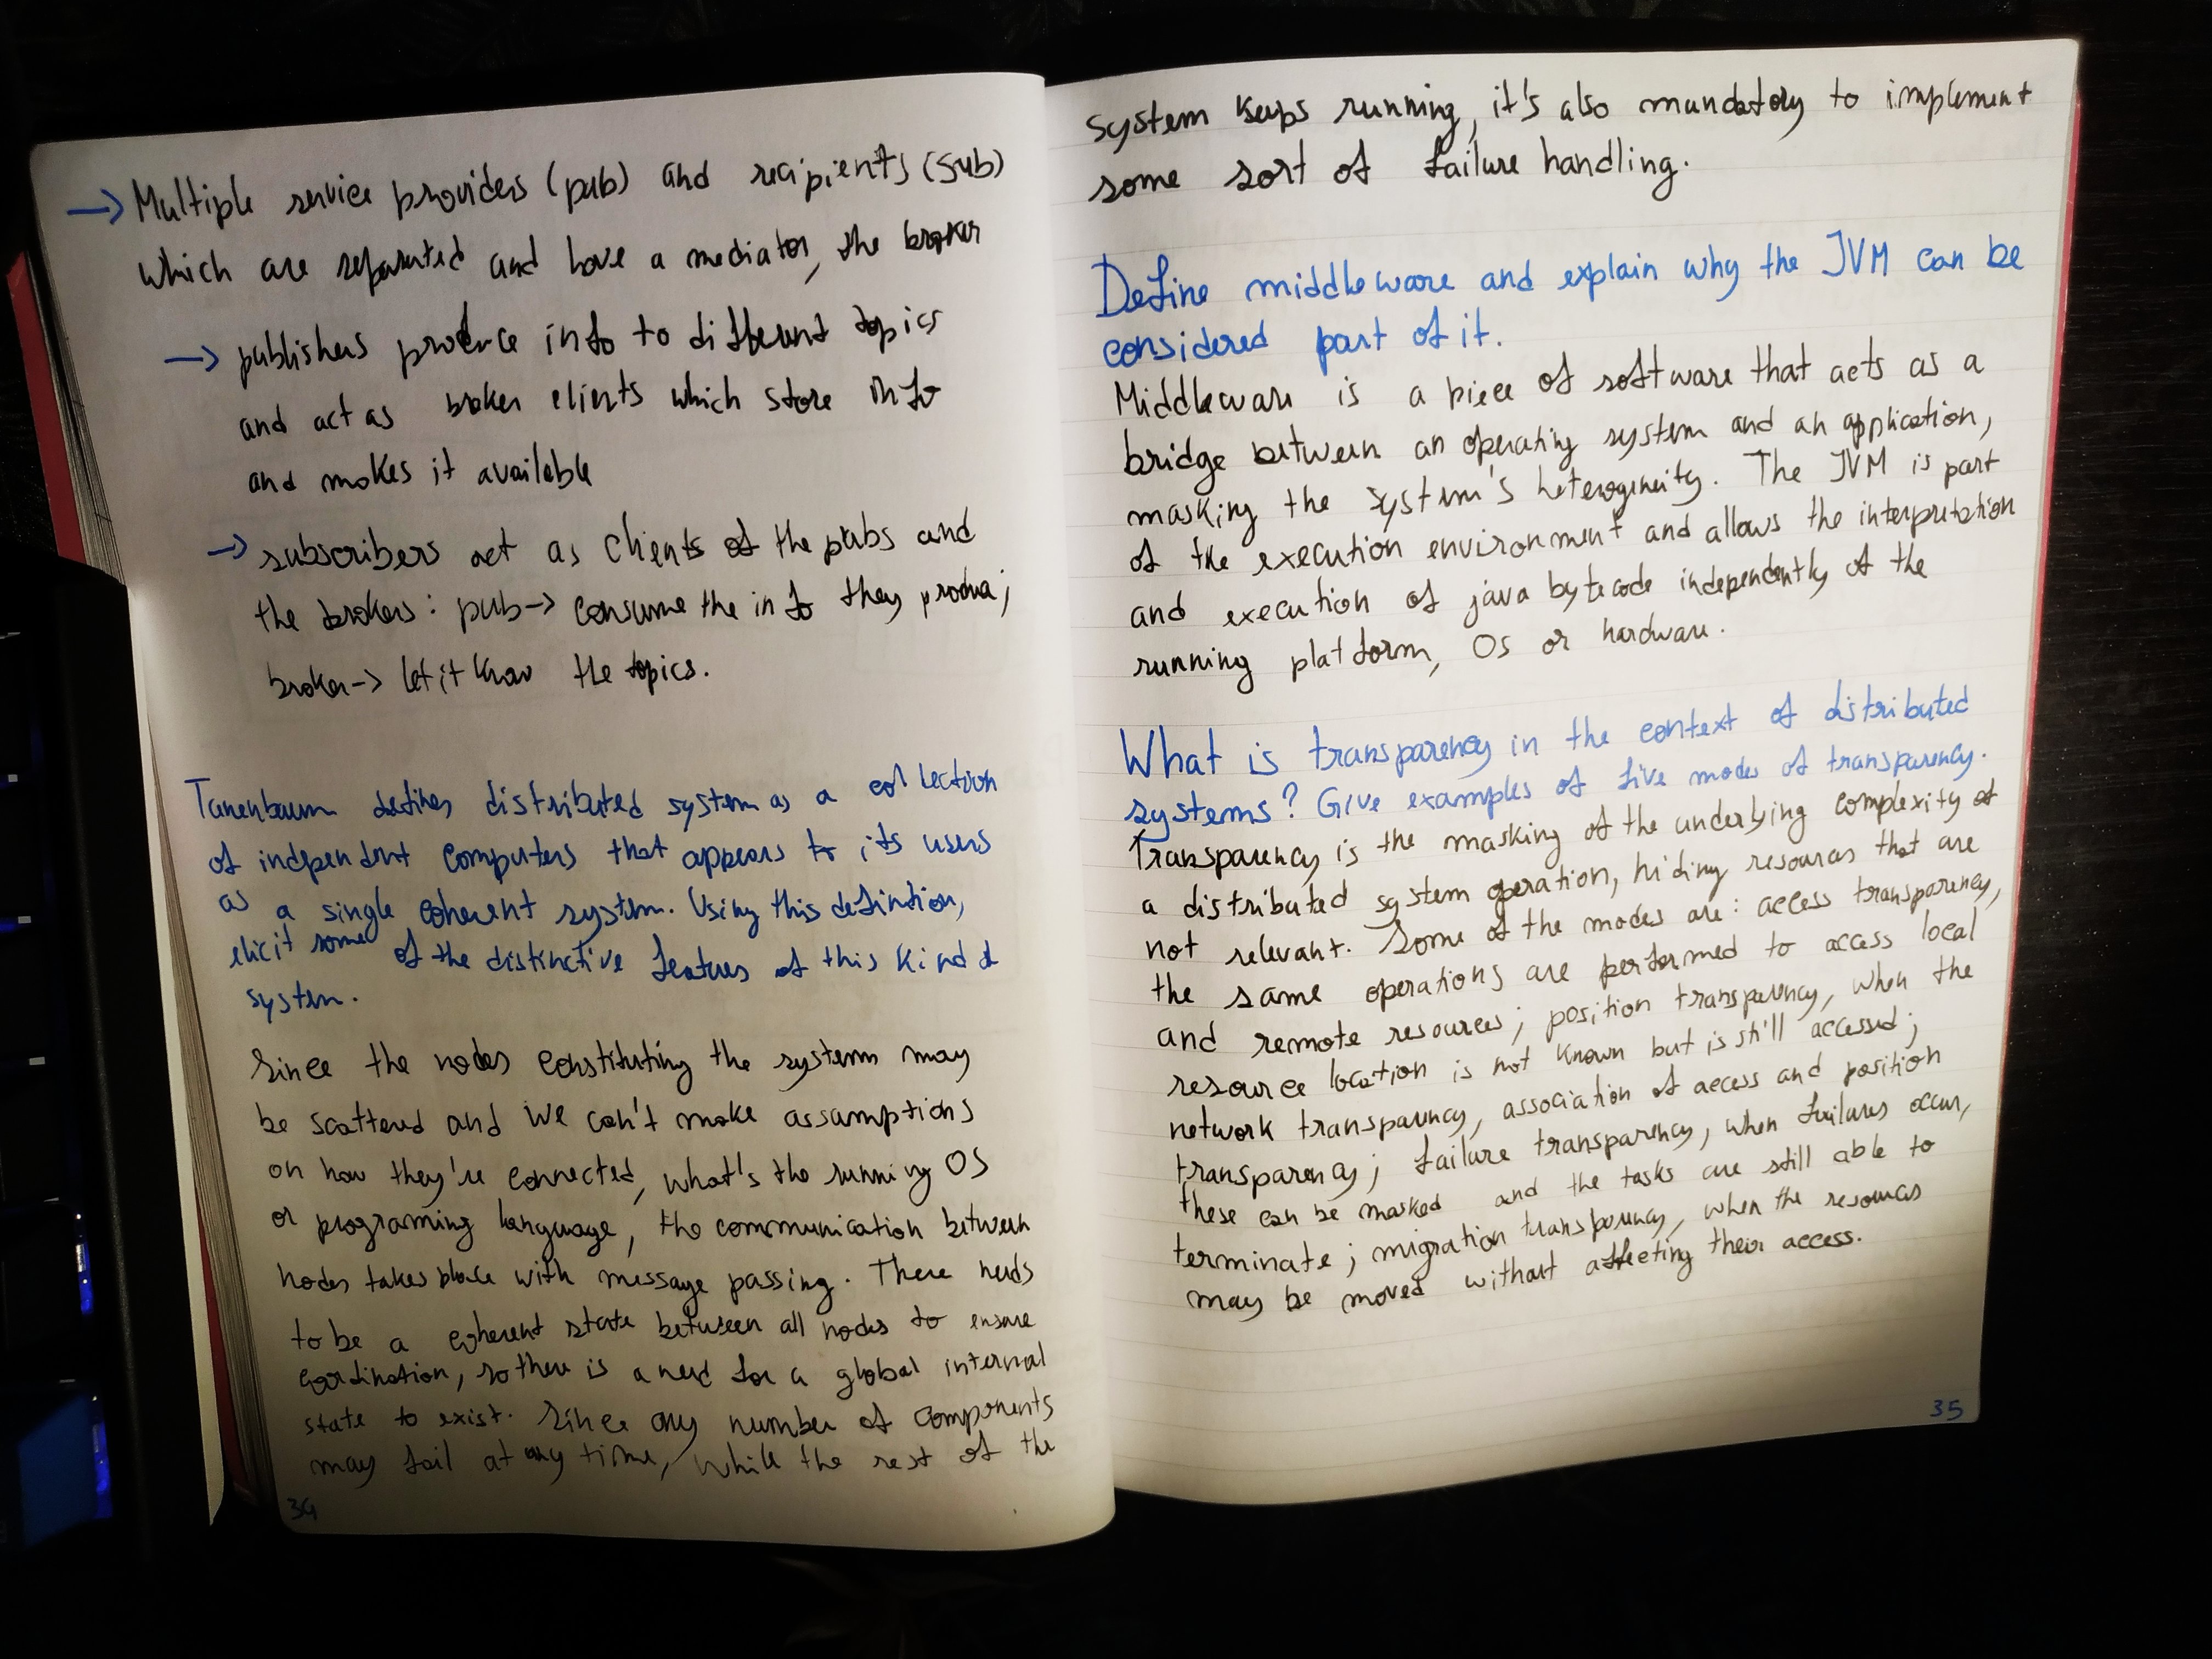 → Multiple service providers (pub) and recipients (sub)
which are separated and have a mediator, the broker
→ publishers produce info to different topics
and act as broker clients which store info
and makes it available
→ subscribers act as clients of the pubs and
the brokers: pub -> consume the info they produce;
broker -> let it know the topics.
Tanenbaum defines distributed system as a collection
of independent computers that appears to its users
as a single coherent system. Using this definition,
elicit some of the distinctive features of this kind of
system.
Since the nodes constituting the systems may
be scattered and we can't make assumptions
on how they're connected, what's the running OS
or programing language, the communication between
nodes takes place with message passing. There needs
to be a coherent state between all nodes to ensure
coordination, so there is a need for a global internal
state to exist. Since any number of components
may fail at any time, while the rest of the
34
system keeps running, it's also mandatory to implement
some sort of failure handling.
Define middleware and explain why the JVM can be
considered part of it.
Middleware is a piece of software that acts as a
bridge between an operating system and an application,
masking the system's heterogeneity. The JVM is part
of the execution environment and allows the interpretation
and execution of java bytecode independently of the
running platform, OS or hardware.
What is transparency in the context of distributed
systems? Give examples of five modes of transparency.
Transparency is the masking of the underlying complexity of
a distributed system operation, hiding resources that are
not relevant. Some of the modes are: access transparency,
the same operations are performed to access local
and remote resources; position transparency, when the
resource location is not known but is still accessed;
network transparency, association of access and position
transparency; failure transparency, when failures occur,
these can be masked and the tasks are still able to
terminate; migration transparency, when the resources
may be moved without affecting their access.
35